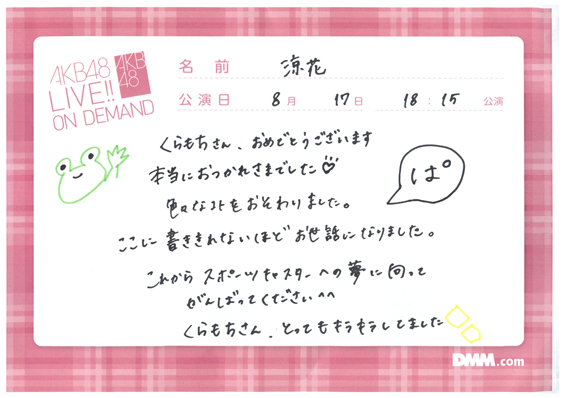 AKB48
LIVE!!
ON DEMAND
AKB
48
名 前 涼花
公演日 8月 17日 18:15 公演
くらもちさん、おめでとうございます
本当におつかれさまでした♡
ぱ°
色々なコトをおそわりました。
ここに書ききれないほどお世話になりました。
これからスポーツキャスターへの夢に向って
がんばってください^^
くらもちさん、とってもキラキラしてました
DMM.com